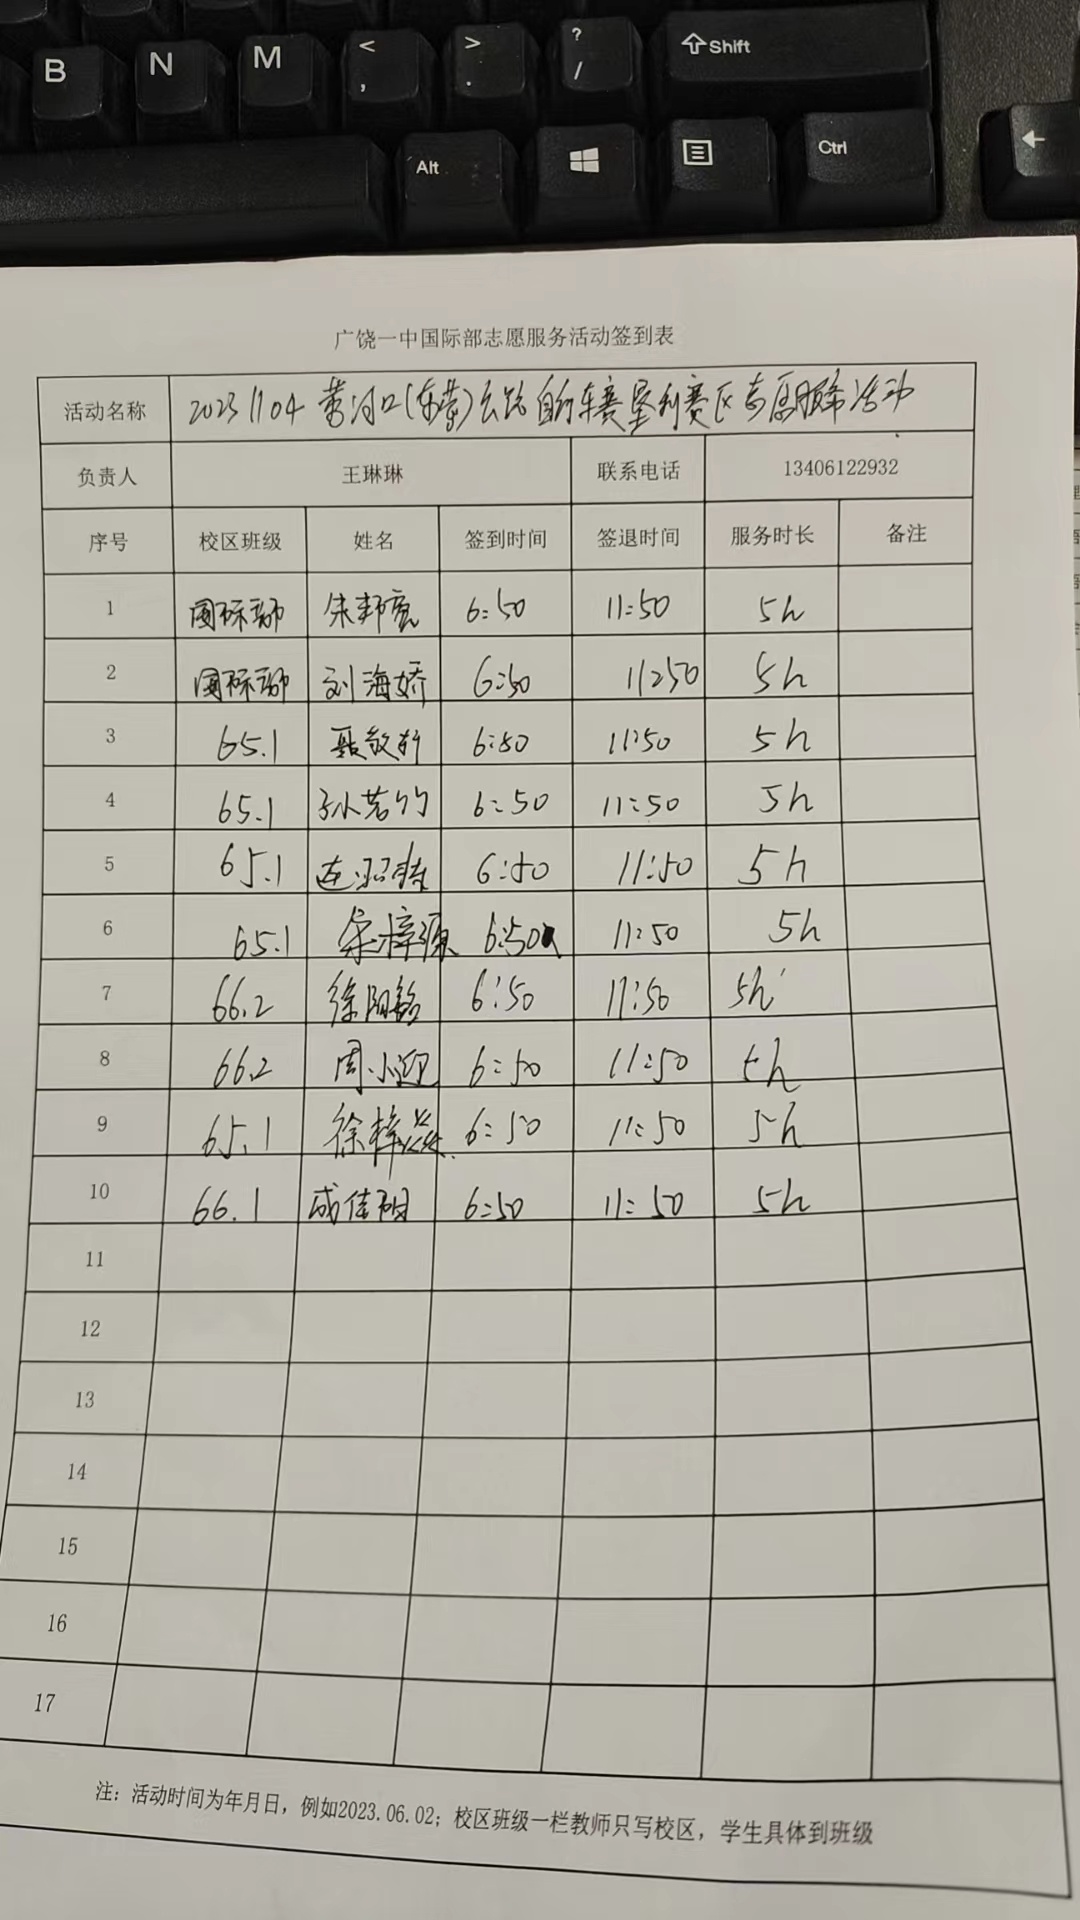 B N M < , > . ? / Shift
Alt Ctrl
广饶一中国际部志愿服务活动签到表
活动名称 20231104 黄河口(东营)公路自行车赛垦利赛区志愿服务活动
负责人 王琳琳 联系电话 13406122932
序号 校区班级 姓名 签到时间 签退时间 服务时长 备注
1 国际部 朱邦亮 6:50 11:50 5h
2 国际部 刘海娇 6:50 11:50 5h
3 65.1 聂敬轩 6:50 11:50 5h
4 65.1 孙若竹 6:50 11:50 5h
5 65.1 6:50 11:50 5h
6 65.1 梓源 6:50 11:50 5h
7 66.2 徐阳铭 6:50 11:50 5h
8 66.2 周小迎 6:50 11:50 5h
9 65.1 徐梓焱 6:50 11:50 5h
10 66.1 成佳 6:50 11:50 5h
11
12
13
14
15
16
17
注：活动时间为年月日，例如2023.06.02；校区班级一栏教师只写校区，学生具体到班级